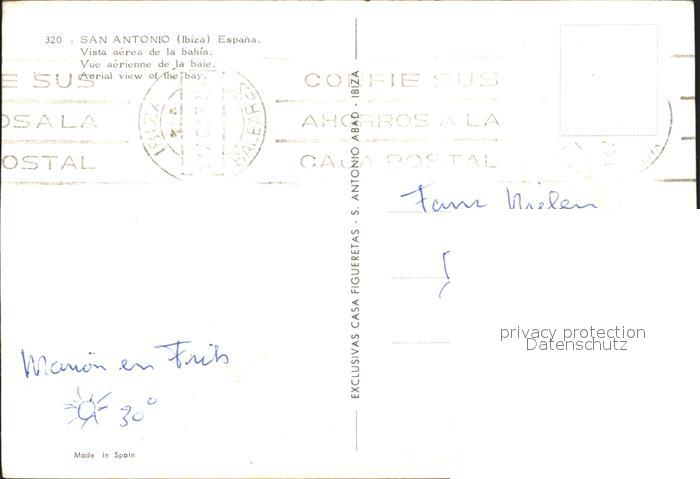 320 - SAN ANTONIO (Ibiza) España.
Vista aérea de la bahía.
Vue aérienne de la baie.
Aerial view of the bay.
E SUS
OS A LA
OSTAL
IBIZA
BALEARES
CONFIE SUS
AHORROS A LA
CAJA POSTAL
EXCLUSIVAS CASA FIGUERETAS - S. ANTONIO ABAD - IBIZA
Fam Nielen
privacy protection
Datenschutz
Marion en Frits
30°
Made in Spain